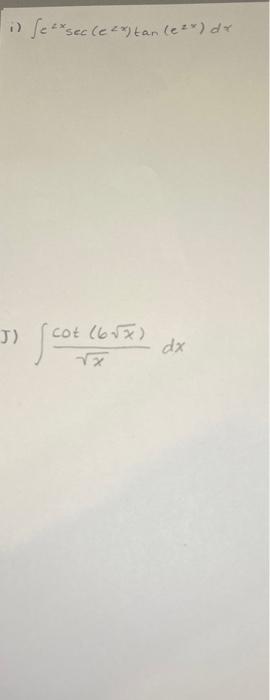 i) ∫e²ˣsec(e²ˣ)tan(e²ˣ)dx
J) ∫cot(6√x)/√x dx